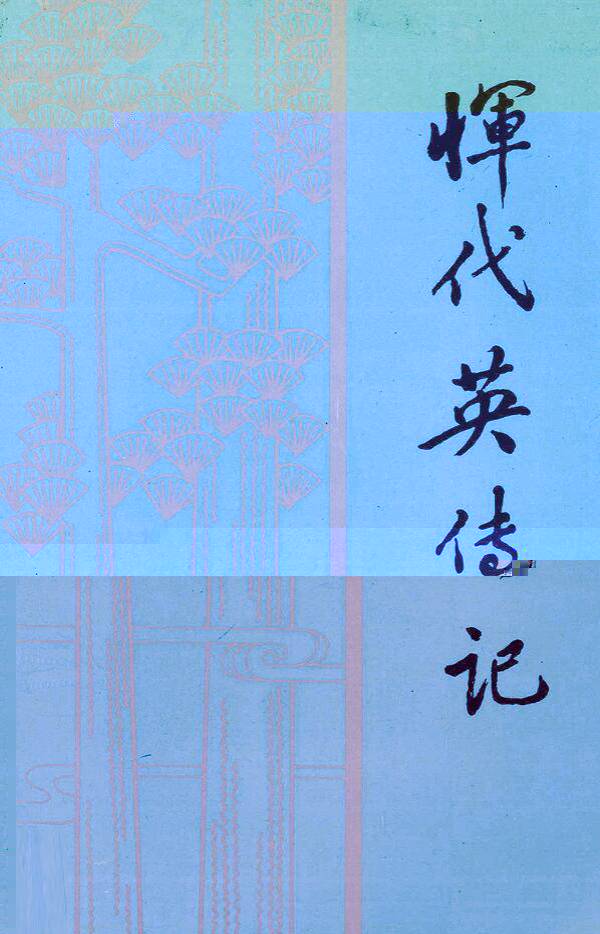 惲代英传记